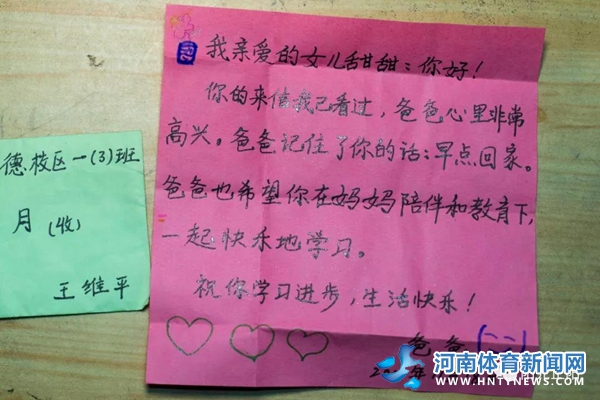 我亲爱的女儿甜甜：你好！
你的来信我已看过，爸爸心里非常
高兴。爸爸记住了你的话：早点回家。
爸爸也希望你在妈妈陪伴和教育下，
一起快乐地学习。
祝你学习进步，生活快乐！
爸爸
德校区一(3)班
月(收)
王维平
河南体育新闻网
WWW.HNTYNEWS.COM